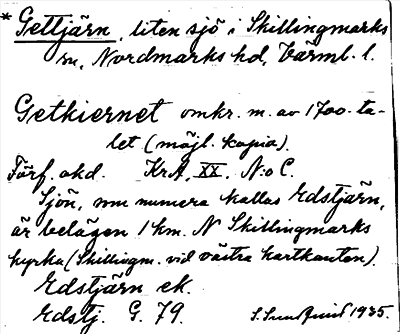 * Gettjärn, liten sjö i Skillingmarks
sn, Nordmarks hd, Värml. l.
Getkiernet omkr. m. av 1700-ta-
let (möjl. kopia).
Förf. okd. KrA, XX. N:o C.
Sjön, som numera kallas Edstjärn,
är belägen 1 km. N Skillingmarks
kyrka (Skillingm. vid västra kartkanten).
Edstjärn ek.
Edstj. G. 79. S. Sundquist 1935.